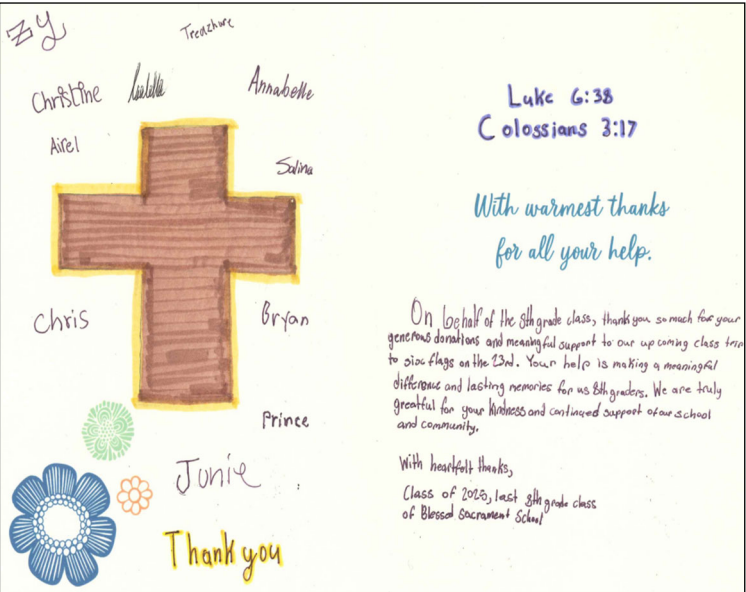 ZY
Treazhure
Christine
Annabelle
Airel
Salina
Chris
Bryan
Prince
Junie
Thank you
Luke 6:38
Colossians 3:17
With warmest thanks
for all your help.
On behalf of the 8th grade class, thank you so much for your
generous donations and meaningful support to our up coming class trip
to six flags on the 23rd. Your help is making a meaningful
difference and lasting memories for us 8th graders. We are truly
greatful for your kindness and continued support of our school
and community.
With heartfelt thanks,
Class of 2025, last 8th grade class
of Blessed Sacrament School